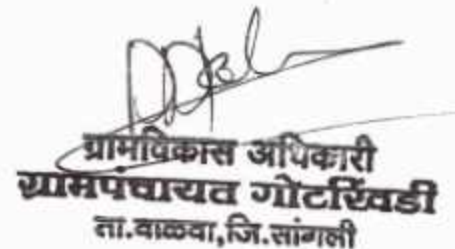 ग्रामविकास अधिकारी
ग्रामपंचायत गोटखिंडी
ता.वाळवा,जि.सांगली